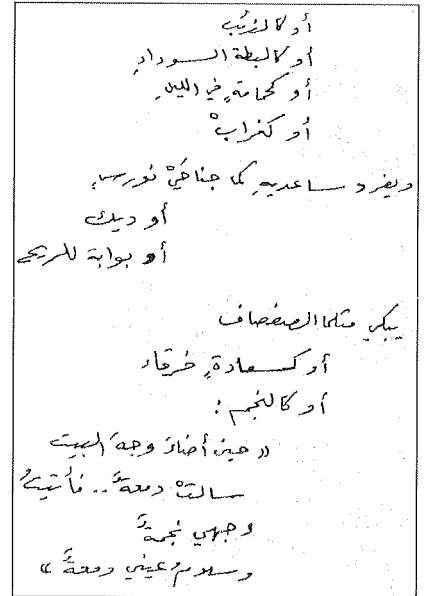 أو كالزئب
أو كالبطة السوداءِ
أو كحمامةٍ في الليلِ
أو كغرابْ
ويفرد ساعديهِ كما جناحَيْ نورسٍ
أو ديك
أو بوابة للريح
يبكي مثلما الصفصاف
أو كسعادةٍ خرقاء
أو كالنجم :
(( حين أضاءَ وجهَ البيت
سالتْ دمعةٌ .. فأتيتُ
وجهي نجمةٌ
وسلام عيني دمعةٌ ))